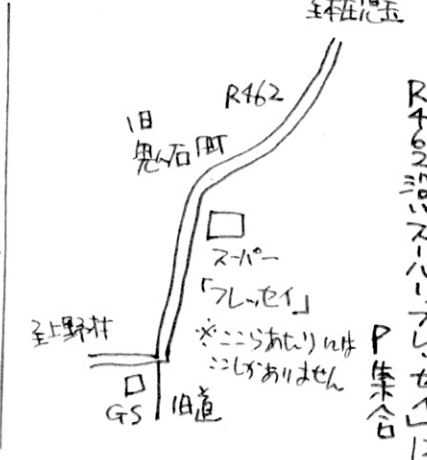 至本庄児玉
R462
旧
鬼石町
スーパー
「フレッセイ」
※ここらあたりには
ここしかありません
至上野村
GS
旧道
R462沿いスーパー「フレッセイ」に
P集合